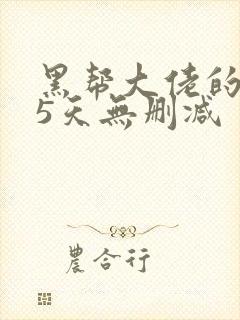 黑帮大佬的
5天無删减
農合行